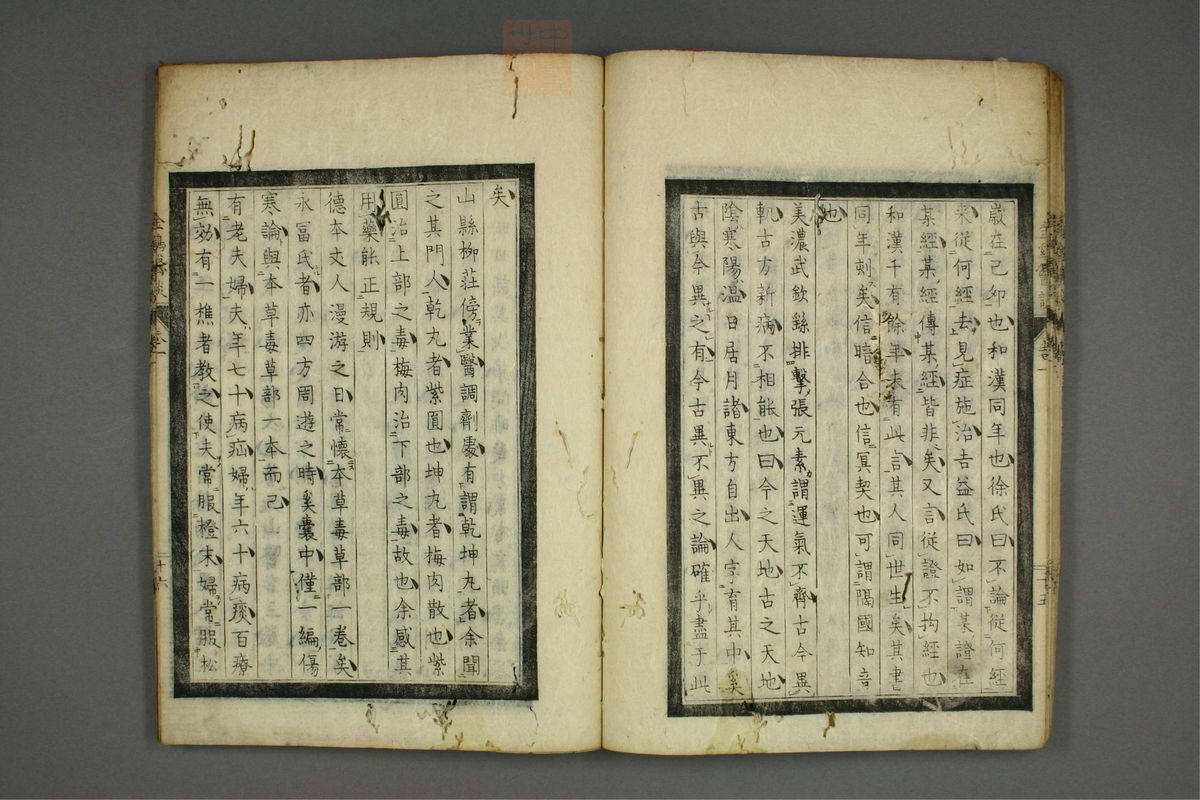 歳在己卯也和漢同年也徐氏曰不論従何經
来従何經去見症施治吉益氏曰如謂某證在
某經某經傳某經皆非矣又言従證不拘經也
和漢千有餘年未有此言其人同世生矣其書
同年刻矣信暗合也信冥契也可謂隔國知音
也
美濃武欽繇排擊張元素謂運氣不齊古今異
軌古方新病不相能也曰今之天地古之天地
陰寒陽温日居月諸東方自出人字育其中奚
古與今異之有今古異不異之論確乎盡于此
矣
山縣柳莊傍業醫調劑處有謂乾坤丸者余聞
之其門人乾丸者紫圓也坤丸者梅肉散也紫
圓治上部之毒梅肉治下部之毒故也余感其
用藥能正規則
德本丈人漫游之日常懷本草毒草部一巻矣
永冨氏者亦四方周遊之時奚囊中僅一編傷
寒論與本草毒草部六本而已
有老夫婦夫年七十病疝婦年六十病痰百療
無効有一樵者教之使夫常服橙末婦常服松
十五
十六